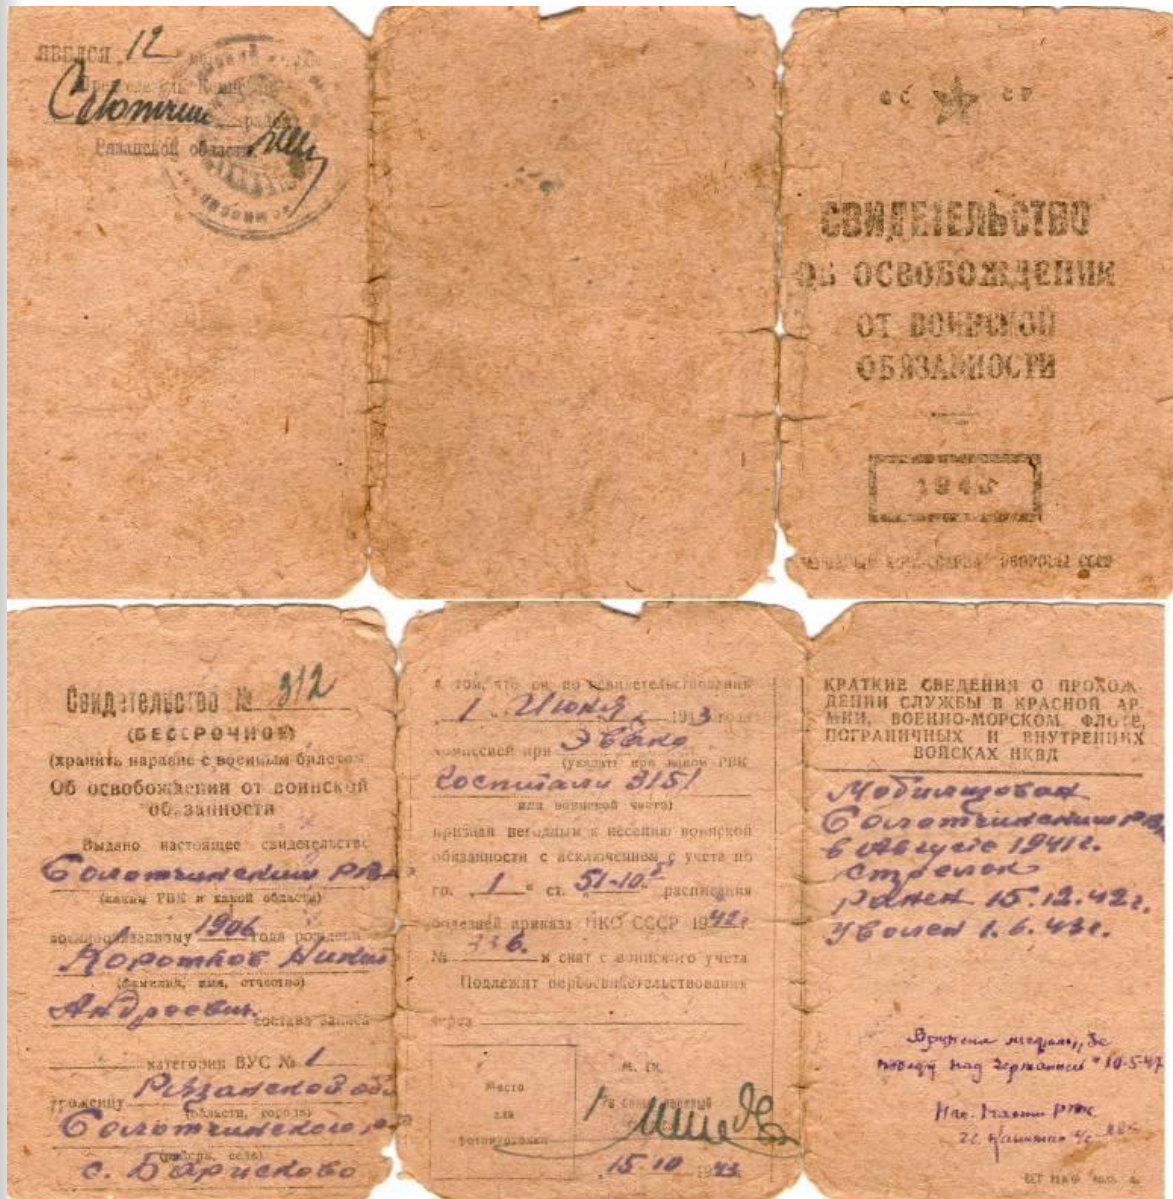 ЯВЛСЯ 12
Солотчин
Рязанской области
СС СР
СВИДЕТЕЛЬСТВО
ОБ ОСВОБОЖДЕНИИ
ОТ ВОИНСКОЙ
ОБЯЗАННОСТИ
194
ОБОРОНЫ СССР
Свидетельство № 312
(БЕССРОЧНОЕ)
(хранить наравне с военным билетом
Об освобождении от воинской
обязанности
Выдано настоящее свидетельство
Солотчинским РВК
(каким РВК и какой области)
военнообязанному 1906 года рождения
Коротков Никол
(фамилия, имя, отчество)
Андреевич состава запаса
категории ВУС № 1
уроженцу Рязанской обл
(области, города)
Солотчинского р-н
(района, села)
с. Барисково
в том, что он по освидетельствовании
1 Июня 1943 года
комиссией при Эвако
(указать при каком РВК
госпитали 3151
или воинской части)
признан негодным к несению воинской
обязанности с исключением с учета по
гр. 1 ст. 51-10 расписания
болезней приказа НКО СССР 1942 г.
№ 336. и снят с воинского учета
Подлежит переосвидетельствования
через
Место
для
фотокарточки
М. П.
15.10 1943
КРАТКИЕ СВЕДЕНИЯ О ПРОХОЖ-
ДЕНИИ СЛУЖБЫ В КРАСНОЙ АР-
МИИ, ВОЕННО-МОРСКОМ ФЛОТЕ,
ПОГРАНИЧНЫХ И ВНУТРЕННИХ
ВОЙСКАХ НКВД
Мобилизован
Солотчинским РВК
в Августе 1941 г.
стрелок
Ранен 15.12.42 г.
Уволен 1.6.43 г.
Вручена медаль „За
победу над Германией" 10-5-47
Нач. части РВК